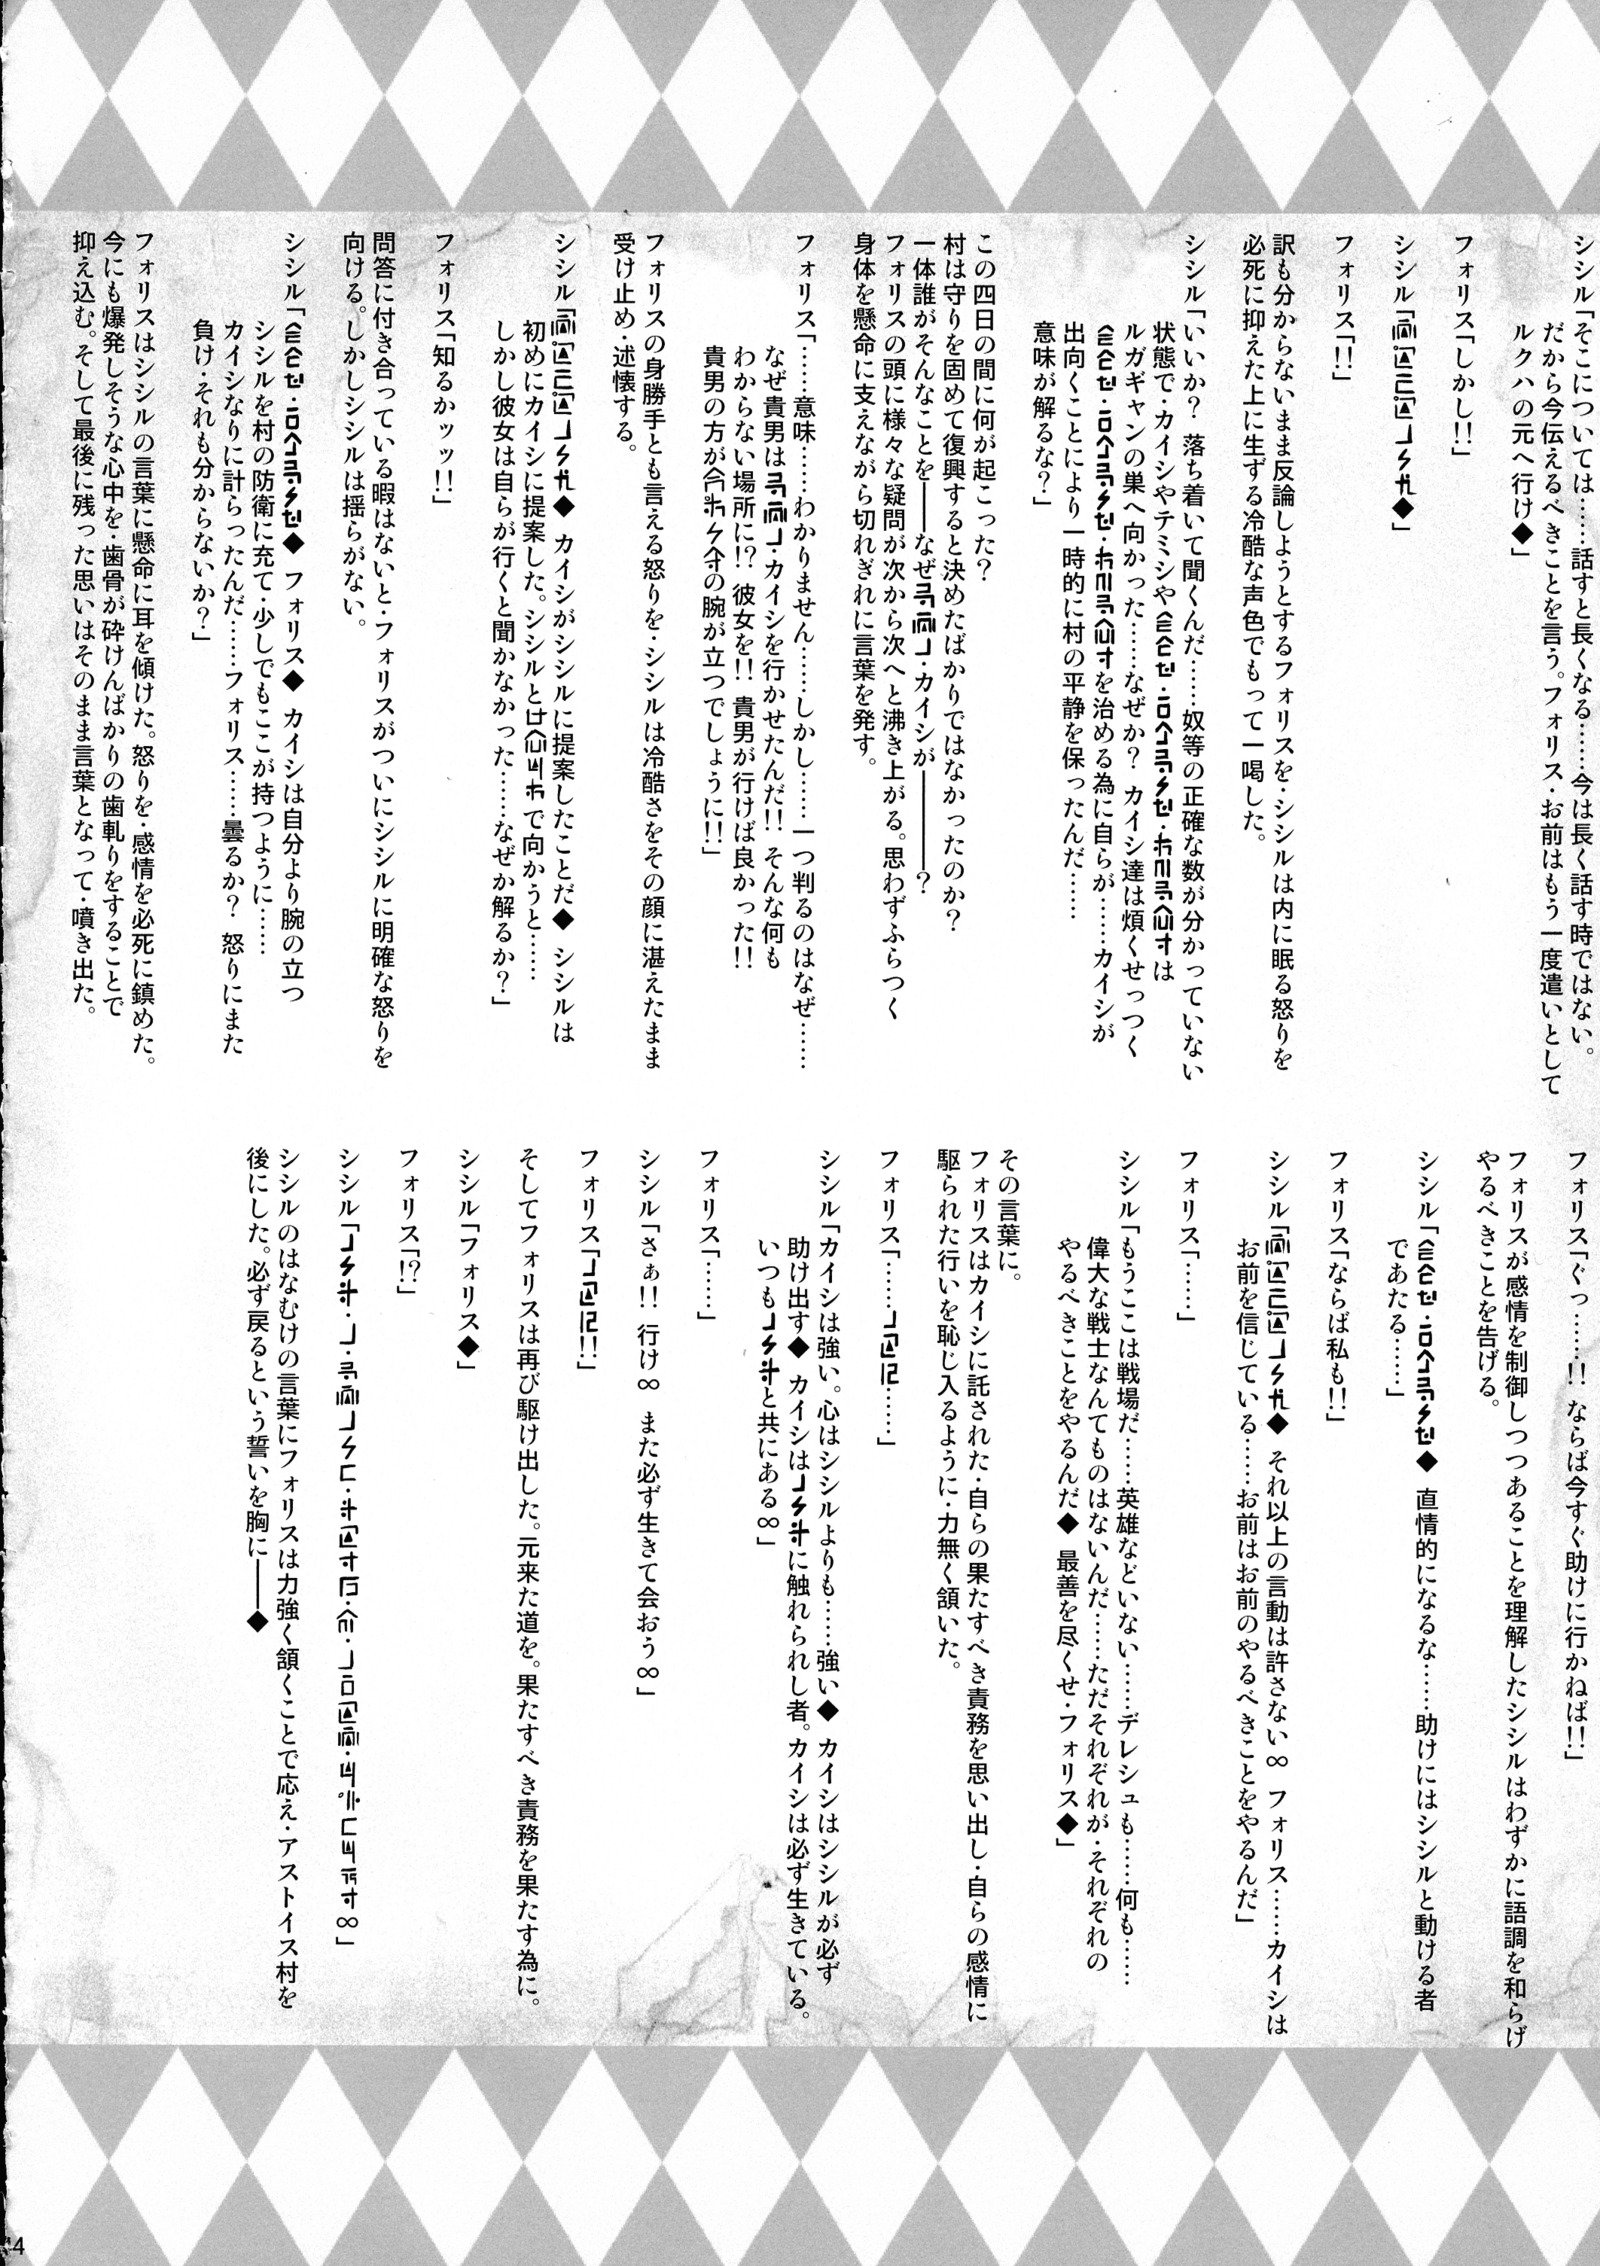 シシル「そこについては……話すと長くなる……今は長く話す時ではない。
だから今伝えるべきことを言う。フォリス・お前はもう一度遣いとして
ルクハの元へ行け◆」
フォリス「しかし!!」
シシル「◆」
フォリス「!!」
訳も分からないまま反論しようとするフォリスを・シシルは内に眠る怒りを
必死に抑えた上に生ずる冷酷な声色でもって一喝した。
シシル「いいか? 落ち着いて聞くんだ……奴等の正確な数が分かっていない
状態で・カイシやテミシや・・は
ルガギャンの巣へ向かった……なぜか? カイシ達は煩くせっつく
・・を治める為に自らが……カイシが
出向くことにより一時的に村の平静を保ったんだ……
意味が解るな?」
この四日の間に何が起こった?
村は守りを固めて復興すると決めたばかりではなかったのか?
一体誰がそんなことを――なぜ・カイシが―――?
フォリスの頭に様々な疑問が次から次へと沸き上がる。思わずふらつく
身体を懸命に支えながら切れぎれに言葉を発す。
フォリス「……意味……わかりません……しかし……一つ判るのはなぜ……
なぜ貴男は・カイシを行かせたんだ!! そんな何も
わからない場所に!? 彼女を!! 貴男が行けば良かった!!
貴男の方がの腕が立つでしょうに!!」
フォリスの身勝手とも言える怒りを・シシルは冷酷さをその顔に湛えたまま
受け止め・述懐する。
シシル「◆ カイシがシシルに提案したことだ◆ シシルは
初めにカイシに提案した。シシルとで向かうと……
しかし彼女は自らが行くと聞かなかった……なぜか解るか?」
フォリス「知るかッッ!!」
問答に付き合っている暇はないと・フォリスがついにシシルに明確な怒りを
向ける。しかしシシルは揺らがない。
シシル「・◆ フォリス◆ カイシは自分より腕の立つ
シシルを村の防衛に充て・少しでもここが持つように……
カイシなりに計らったんだ……フォリス……曇るか? 怒りにまた
負け・それも分からないか?」
フォリスはシシルの言葉に懸命に耳を傾けた。怒りを・感情を必死に鎮めた。
今にも爆発しそうな心中を・歯骨が砕けんばかりの歯軋りをすることで
抑え込む。そして最後に残った思いはそのまま言葉となって・噴き出た。
フォリス「ぐっ……!! ならば今すぐ助けに行かねば!!」
フォリスが感情を制御しつつあることを理解したシシルはわずかに語調を和らげ
やるべきことを告げる。
シシル「・◆ 直情的になるな……助けにはシシルと動ける者
であたる……」
フォリス「ならば私も!!」
シシル「◆ それ以上の言動は許さない∞ フォリス……カイシは
お前を信じている……お前はお前のやるべきことをやるんだ」
フォリス「……」
シシル「もうここは戦場だ……英雄などいない……デレシュも……何も……
偉大な戦士なんてものはないんだ……ただそれぞれが・それぞれの
やるべきことをやるんだ◆ 最善を尽くせ・フォリス◆」
その言葉に。
フォリスはカイシに託された・自らの果たすべき責務を思い出し・自らの感情に
駆られた行いを恥じ入るように・力無く頷いた。
フォリス「…………」
シシル「カイシは強い。心はシシルよりも……強い◆ カイシはシシルが必ず
助け出す◆ カイシはに触れられし者。カイシは必ず生きている。
いつもと共にある∞」
フォリス「……」
シシル「さぁ!! 行け∞ また必ず生きて会おう∞」
フォリス「!!」
そしてフォリスは再び駆け出した。元来た道を。果たすべき責務を果たす為に。
シシル「フォリス◆」
フォリス「!?」
シシル「∞」
シシルのはなむけの言葉にフォリスは力強く頷くことで応え・アストイス村を
後にした。必ず戻るという誓いを胸に――◆